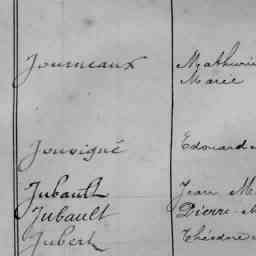 Journeaux Mathurin
Marie
Jouvigné Edouard
Jubault Jean M
Jubault Pierre M
Jubert Théodore